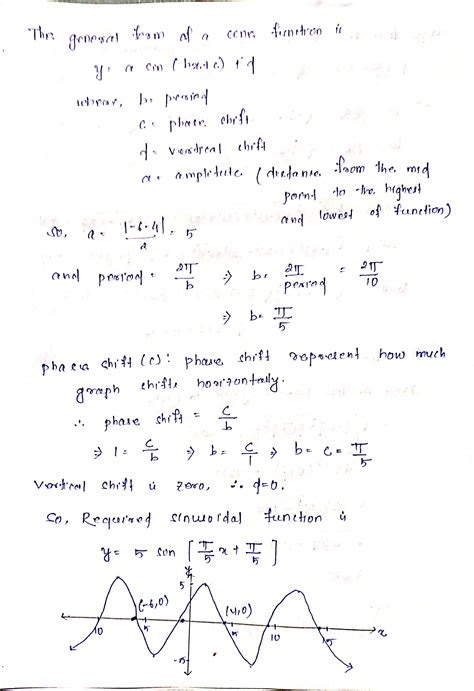 The general form of a cone function is
y = a con (bx+c) + d
where, b = period
c = phase shift
d = vertical shift
a = amplitude (distance from the mid
point to the highest
and lowest of function)
so, a = |-6-4| / 2 = 5
and period = 2π/b ⇒ b = 2π/period = 2π/10
⇒ b = π/5
phase shift (c): phase shift represent how much
graph shifts horizontally.
∴ phase shift = c/b
⇒ 1 = c/b ⇒ b = c/1 ⇒ b = c = π/5
Vertical shift is zero, ∴ d=0.
So, Required sinusoidal function is
y = 5 son [π/5 x + π/5]
y
5
(-6,0)
(4,0)
10
5
5
10
15
x
-5